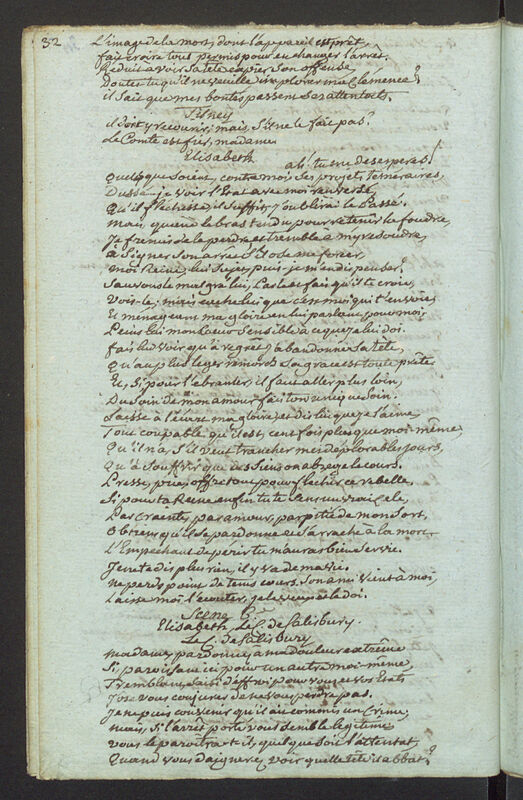 32
L'image de la mort, dont l'appareil est prêt,
fait croire tout permis pour en changer l'arrêt.
Reduit a voir sa tete expier son offense
Doutes tu qu'il ne veuille implorer ma Clemence?
il sait que mes bontés passent ses attentats.
Tilney
il doit y recourir; mais, s'il ne le fait pas?
Le Comte est fier, madame
Elisabeth
ah! tu me desesperes!
Quelque soient contre moi ses projets temeraires,
Dussé-je voir l'Etat avec moi renversé,
Qu'il flechisse, il suffit, j'oublirai le Passé.
Mais, quand le bras tendu pour retenir la foudre,
Je fremis de la perdre et tremble à m'y resoudre,
à Signer son arrêt s'il ose me forcer
moi Reine, lui Sujet, puis-je m'en dispenser?
Sauvons le malgré lui, Parle et fais qu'il te croie,
Vois-le; mais cache lui que c'est moi qui t'envoie
Et menageant ma gloire en lui parlant pour moi
Peins lui mon Coeur Sensible à ce que je lui doi.
fais lui voir qu'à regret j'abandonne sa tête,
Qu'au plus leger remords sa grace est toute prête
Et, Si pour l'ebranler, il faut aller plus loin,
Du soin de mon amour fais ton unique soin.
Laisse à l'écart ma gloire, et dis lui que je l'aime
Tout coupable qu'il est, cent fois plus que moi même,
Qu'il n'a, s'il veut trancher mes déplorables jours,
Qu'à Souffrir que des siens on abrege le cours.
Presse, prie, offre tout pour flechir ce rebelle,
Si pour ta Reine enfin tu te sens un vrai Zele,
Par crainte, par amour, par pitié de mon sort,
Obtiens qu'il se pardonne et s'arrache à la mort
L'Empêchant de perir tu m'auras bien servie.
Je ne te dis plus rien, il y va de ma vie.
ne perds point de tems cours, Son ami vient à moi,
Laisse moi l'écouter, je le veux et le doi.
Scene 6e
Elisabeth, Le C. de Salisbury.
Le C. de Salisbury
madame, pardonnez à ma douleur extrême
Si paroissant ici pour un autre moi-même,
Tremblant, saisi d'effroi pour vous et vos Etats
J'ose vous conjurer de ne vous perdre pas.
Je ne puis convenir qu'il ait commis un Crime;
mais, si l'arrêt porté vous semble legitime
vous le paroitra t-il, quel que soit l'attentat,
Quand vous daignerez voir quelle tête il abbat?